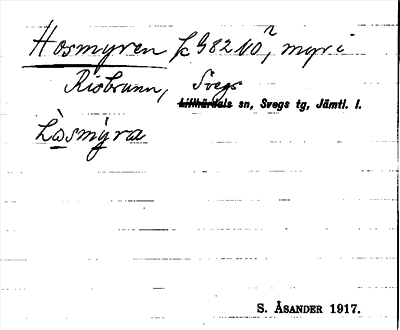 Hosmyren fk 982 NO, myr i
Risbrunn, Svegs
Lillhärdals sn, Svegs tg, Jämtl. l.
S. ÅSANDER 1917.